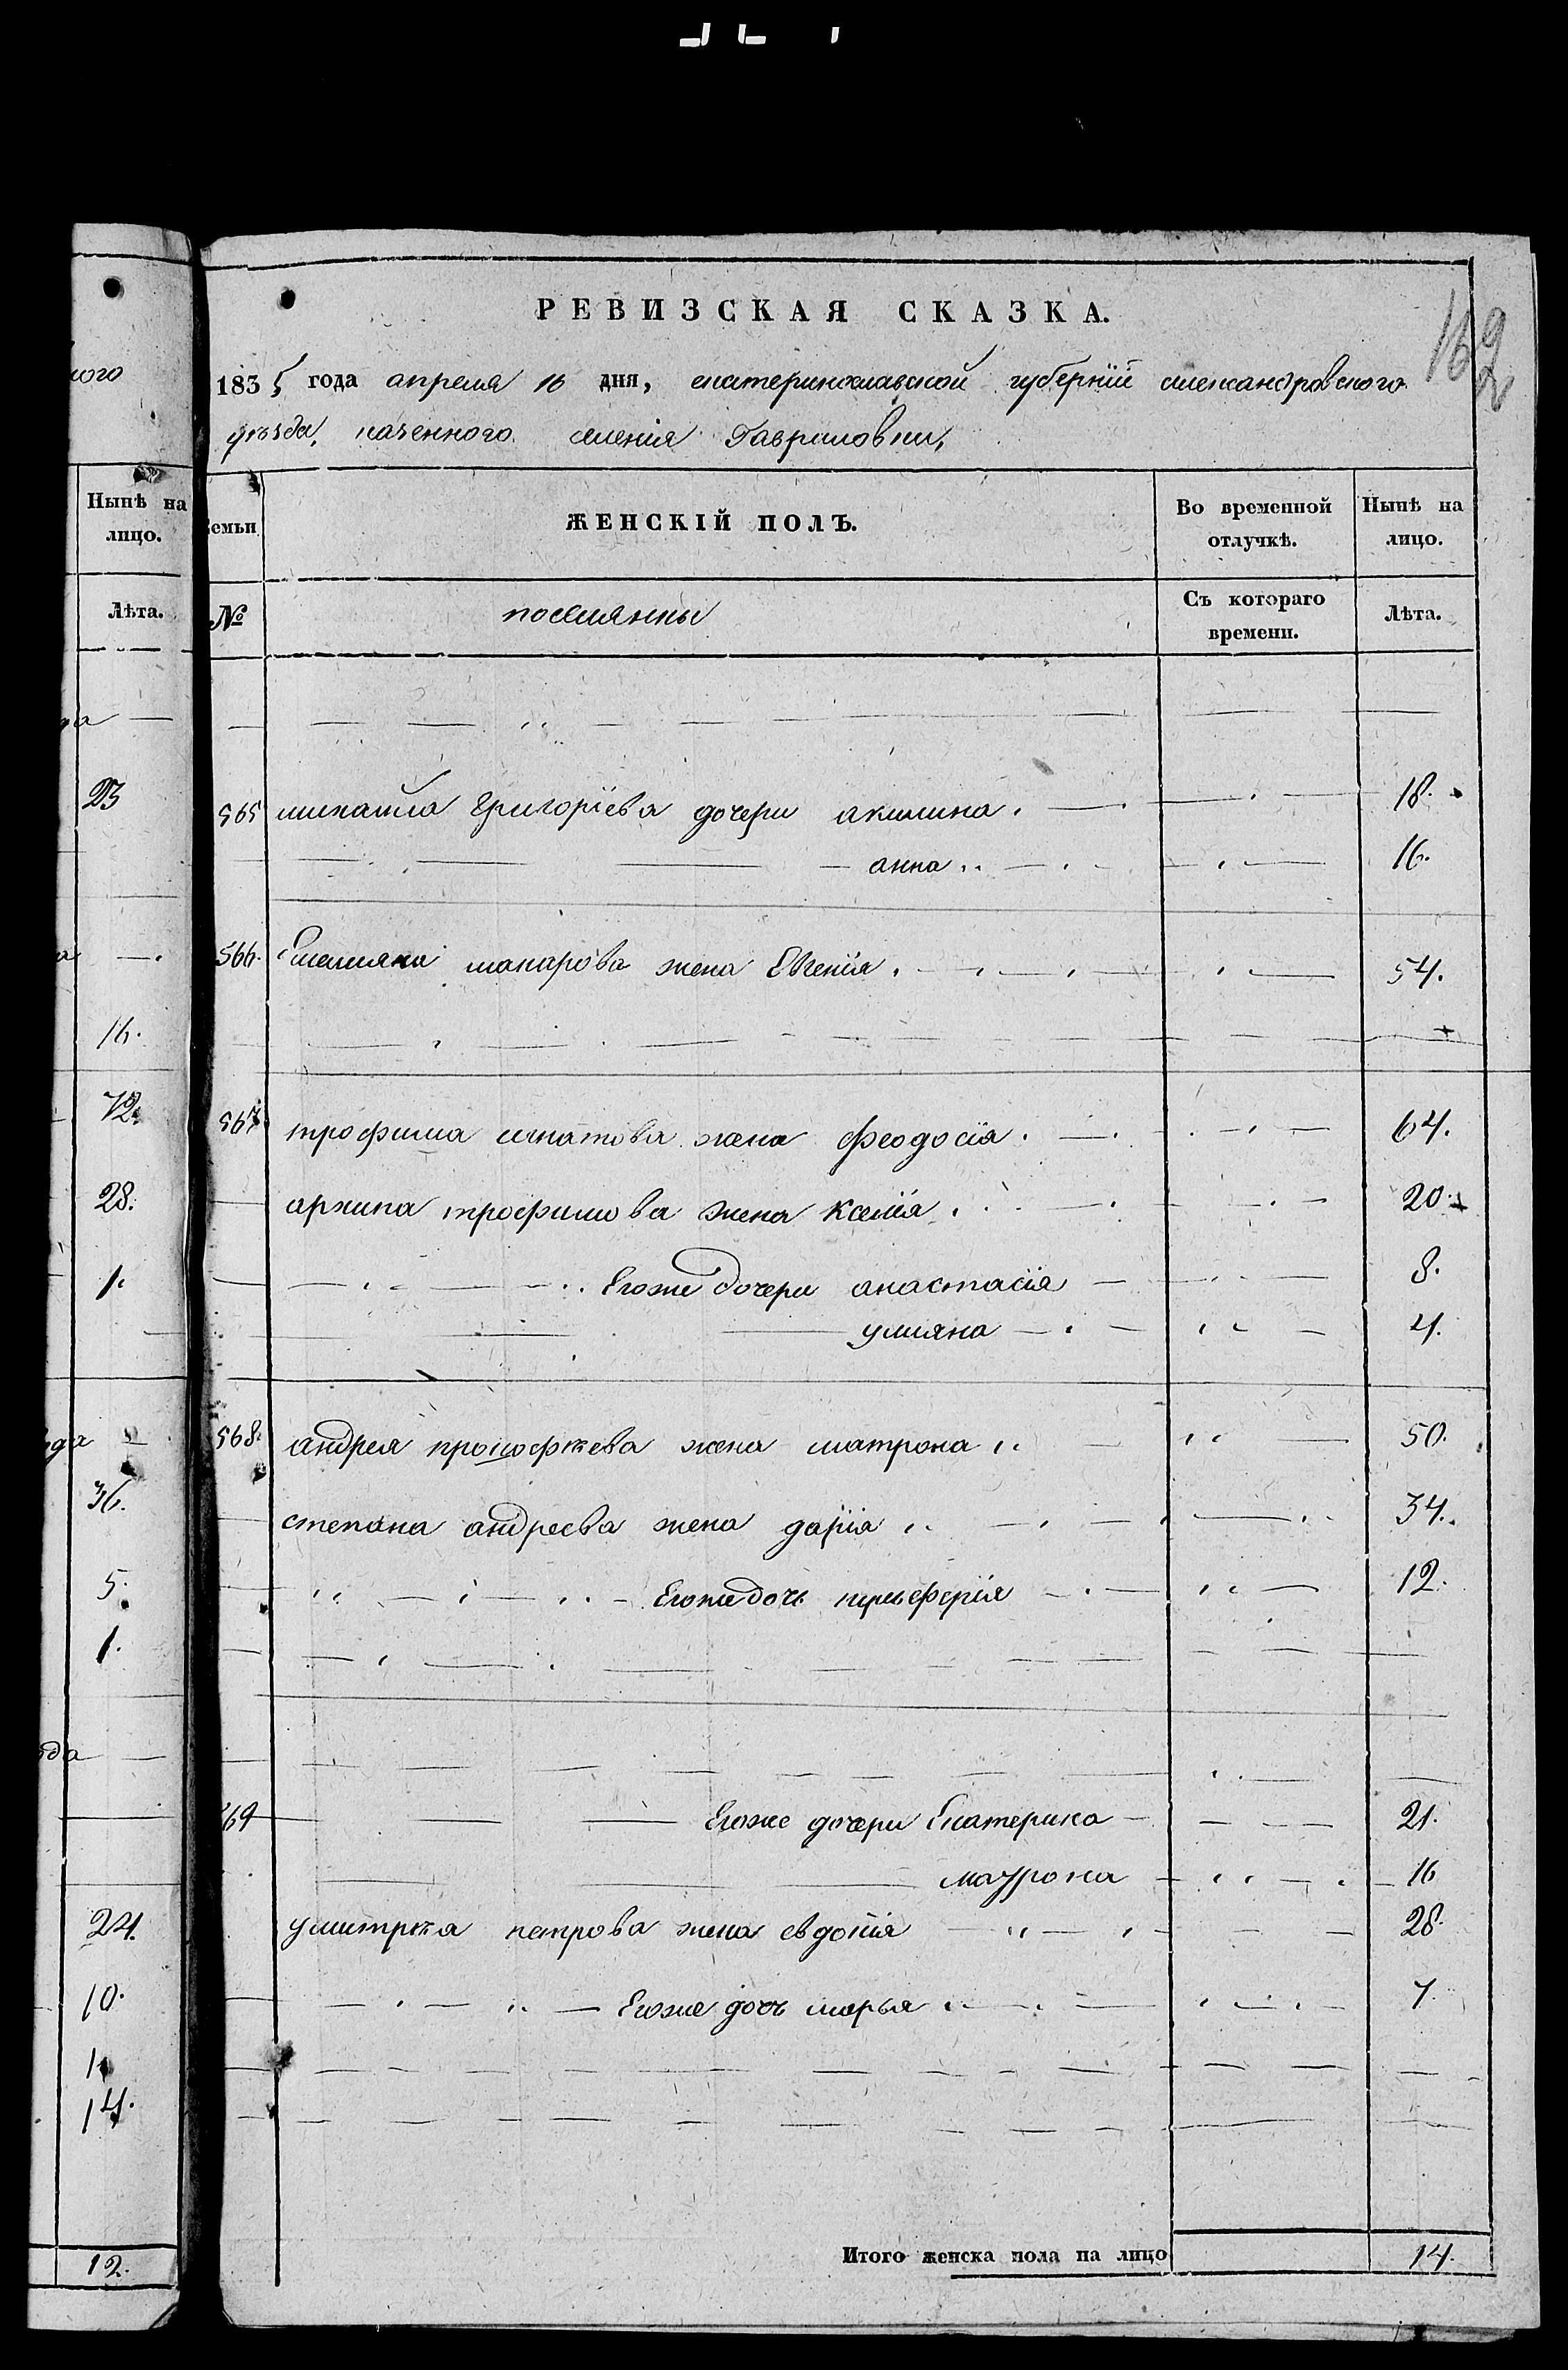 РЕВИЗСКАЯ СКАЗКА.
169
1835 года апреля 16 дня, екатеринославской губернїи александровского
уезда, казенного селенія Гавриловки,
ного
Нынѣ на лицо.
Лѣта.
семьи
№
ЖЕНСКІЙ ПОЛЪ.
поселянны
Во временной отлучкѣ.
Съ котораго времени.
Нынѣ на лицо.
Лѣта.
23
16.
72.
28.
1.
36.
5.
1.
24.
10.
1.
14.
12.
565 михайла Григорїева дочери акилина. 18.
анна 16.
566. Емелияна макарова жена Евгенїя. 54.
567 трофима игнатова жена феодосїя. 64.
архипа трофимова жена Ксенїя. 20.
Егоже дочери анастасїя 8.
улияна 4.
568. андрея прокофѣева жена матрона 50.
степана андреева жена дарїя 34.
Егоже дочь 12.
69 Егоже дочери Екатерина 21.
матрона 16
дмитрѣя петрова жена евдокїя 28.
Егоже дочь марья 7.
Итого женска пола на лицо 14.